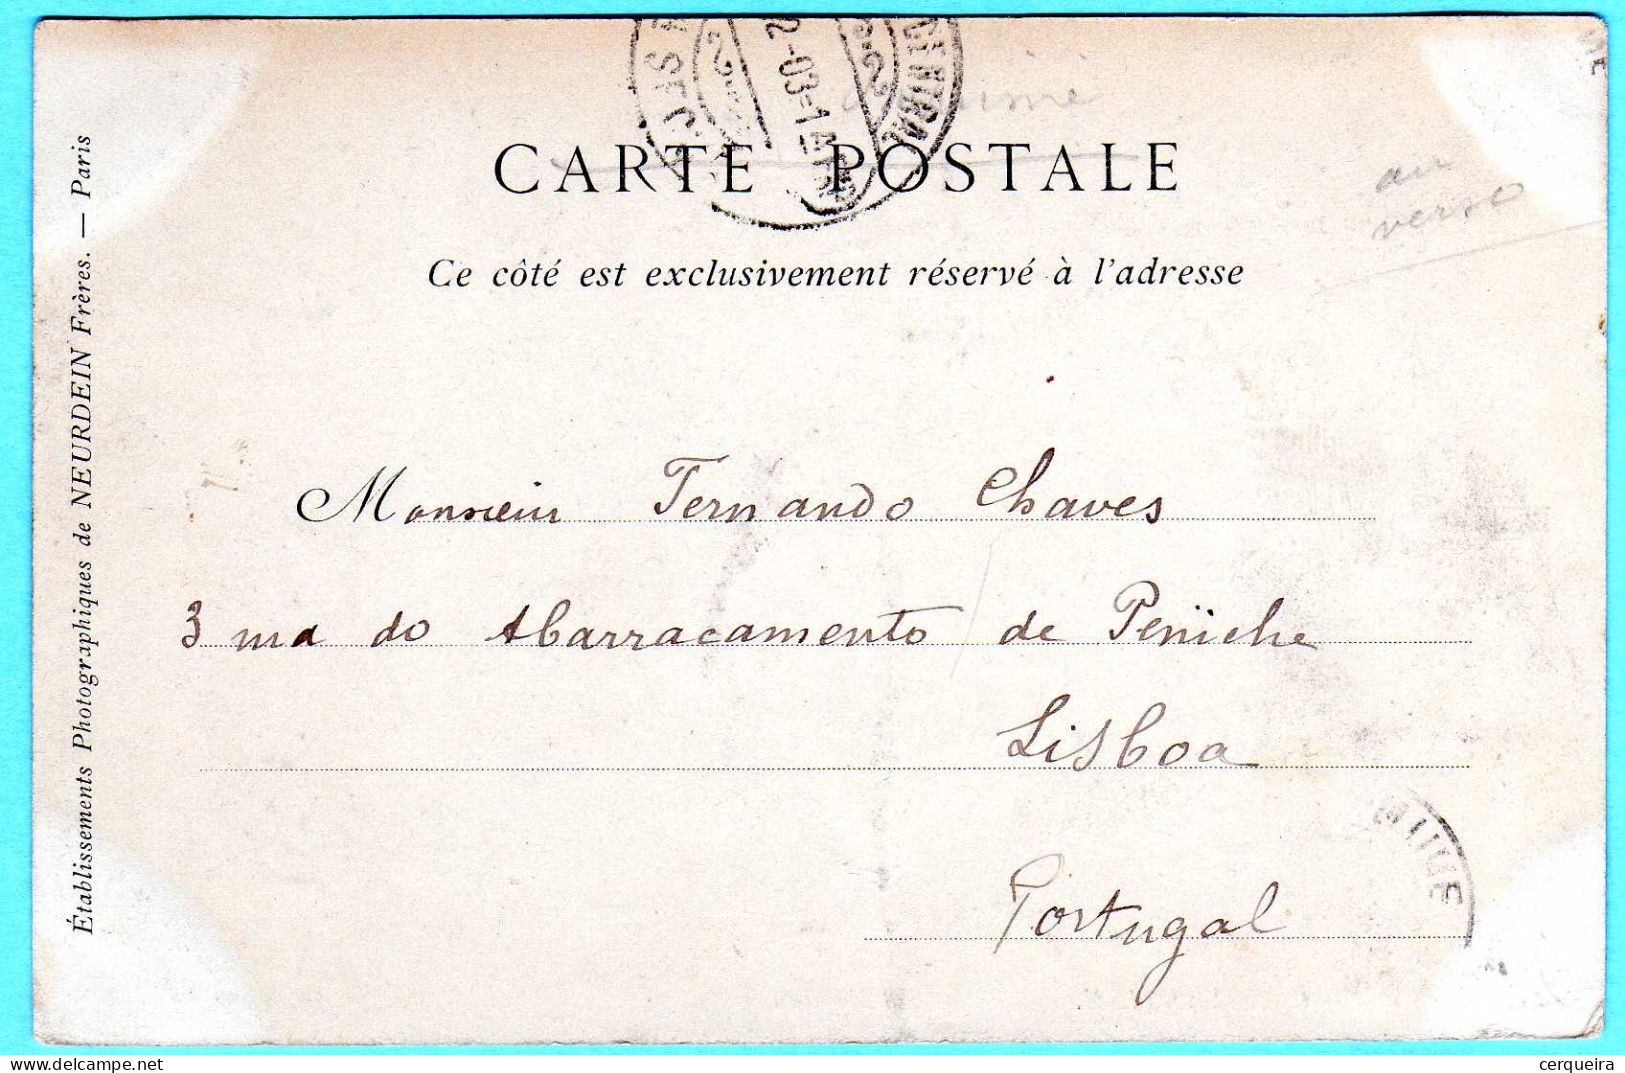 CENTRAL
2-03=1
CARTE POSTALE
au
verso
Ce côté est exclusivement réservé à l'adresse
Monsieur Fernando Chaves
3 rua do Abarracamento de Peniche
Lisboa
Portugal
Établissements Photographiques de NEURDEIN Frères. — Paris
cerqueira
delcampe.net